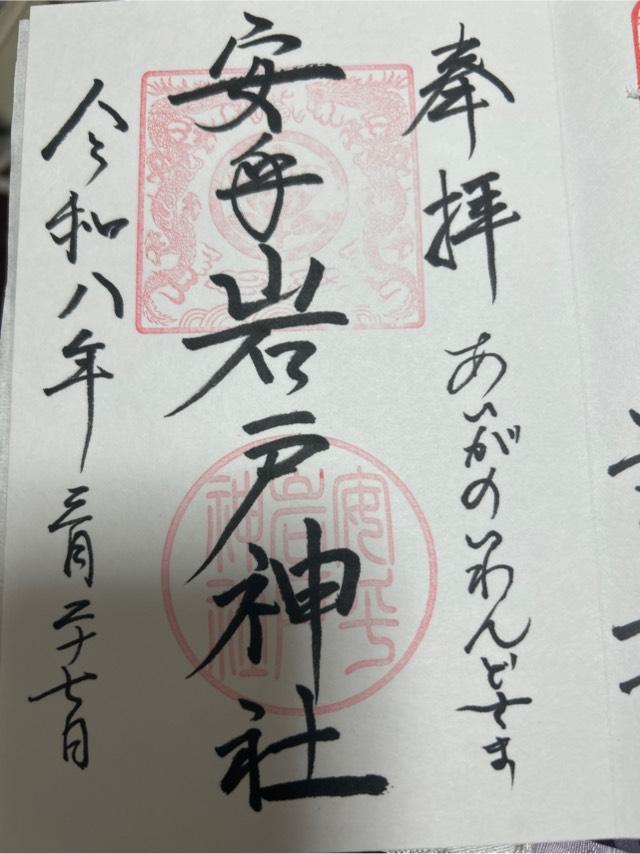 奉拝
あいがのいわんどさま
安乎岩戸神社
安乎
岩戸
神社
令和八年三月二十七日